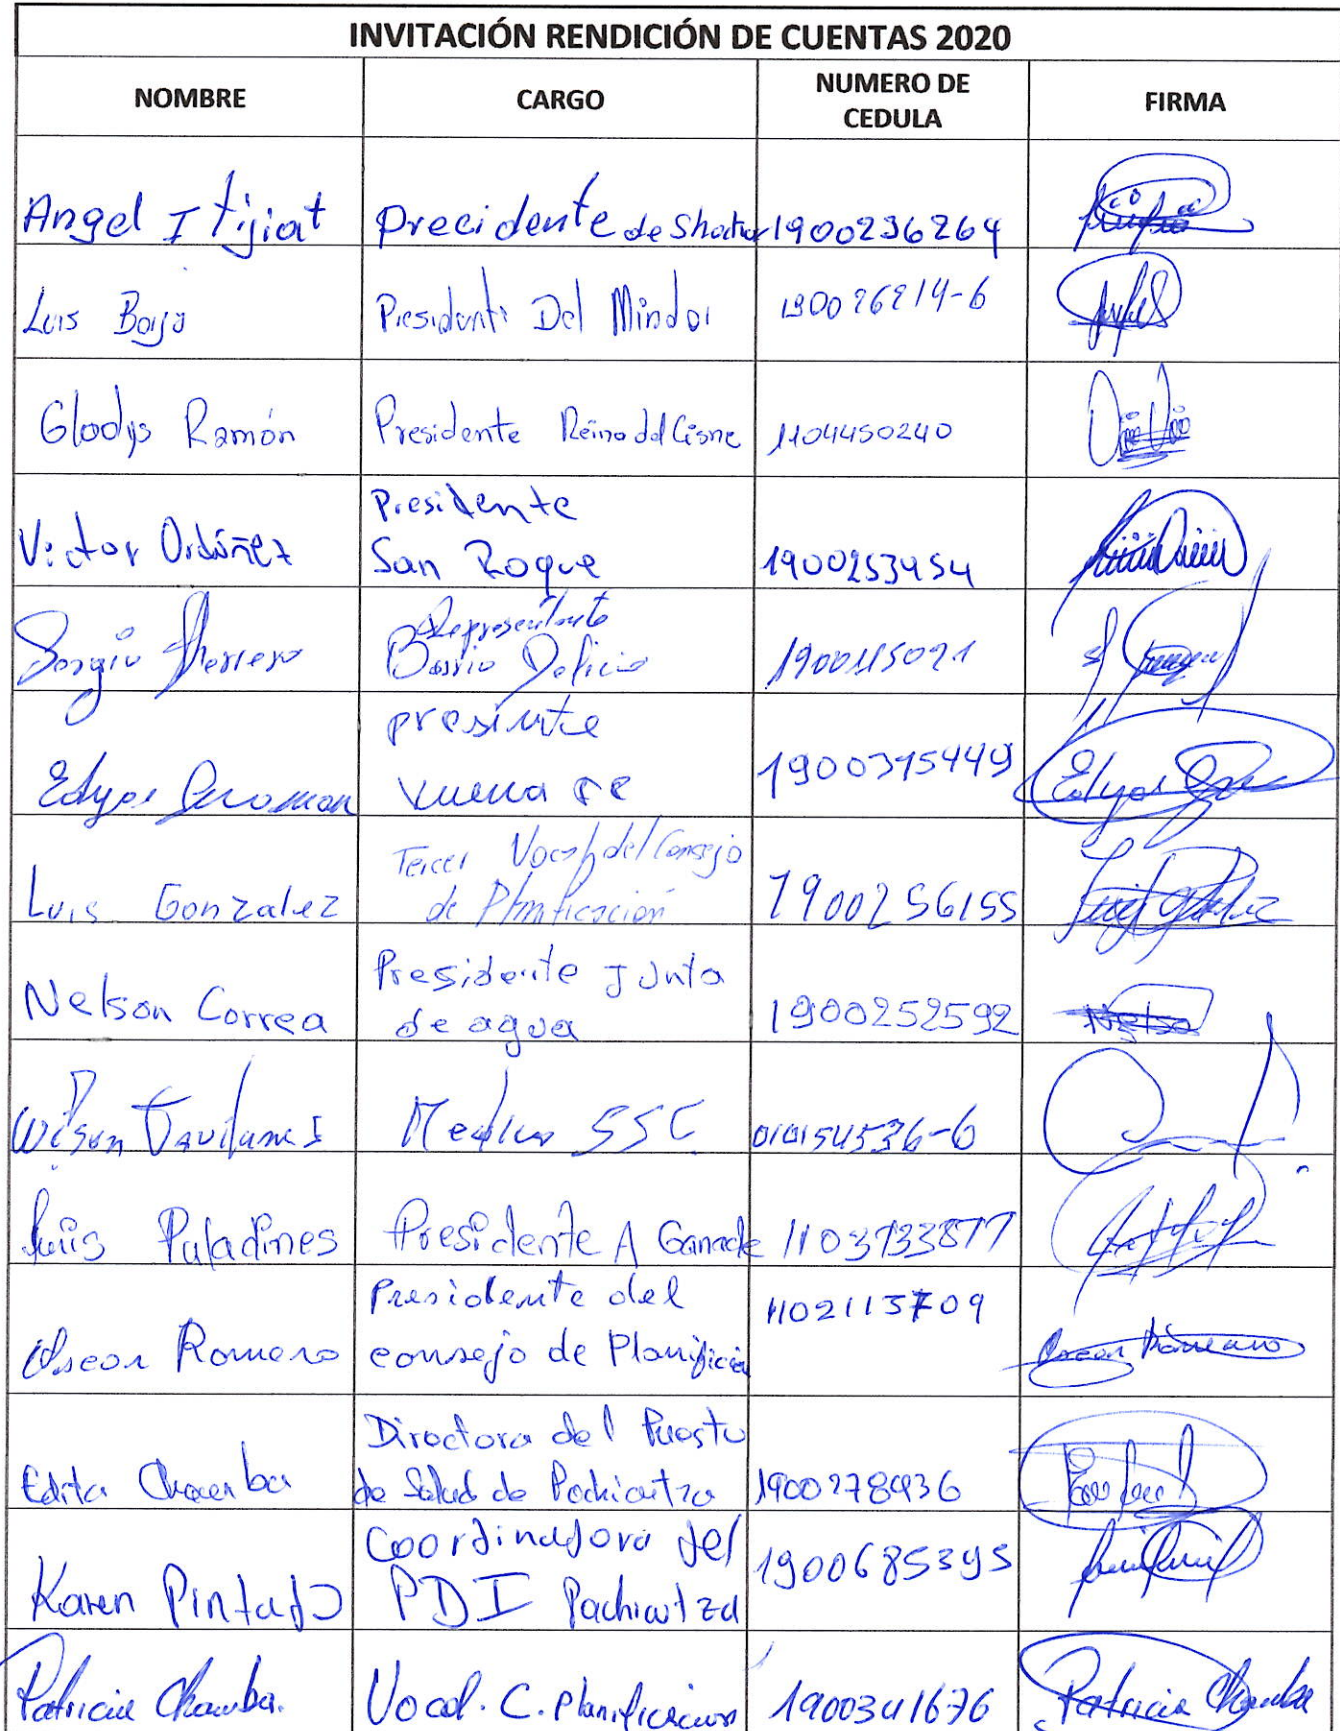 INVITACIÓN RENDICIÓN DE CUENTAS 2020
NOMBRE CARGO NUMERO DE CEDULA FIRMA
Angel I tijiat Precidente de 1900236264
Luis Borja Presidente Del Mirador
Gladys Ramón Presidente Reina del Cisne 1104450240
Victor Ordóñez Presidente San Roque 1900253454
Sergio Herrera Representante Barrio Delicia
Edgar presinte vuena fe 1900395449 Edgar
Luis Gonzalez Tercer Vocal del Consejo de Planificación 1900256155
Nelson Correa Presidente Junta de agua 1900252592 Nelso
Wilson Medico SSC 010154536-6
Luis Paladines Presidente A Ganade 1103733877
Oscar Romero Presidente del consejo de Planificación 1102113709 Oscar Romero
Edita Chamba Directora del Puesto de Salud de Pachicutza 1900278936
Karen Pintado Coordinadora del PDI Pachicutza 1900685395
Patricia Chamba. Vocal. C. Planificacion 1900341676 Patricia Chamba